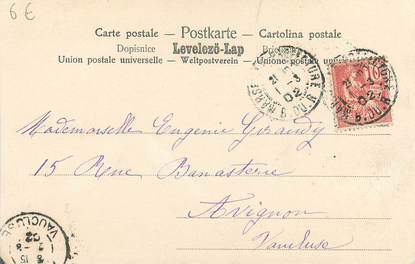 6€
Carte postale — Postkarte — Cartolina postale
Dopisnice Levelező-Lap
Union postale universelle — Weltpostverein — Unione postale
Mademoiselle Eugenie
15 Rue Banasterie
Avignon
Vaucluse
VAUCLUSE
02
10